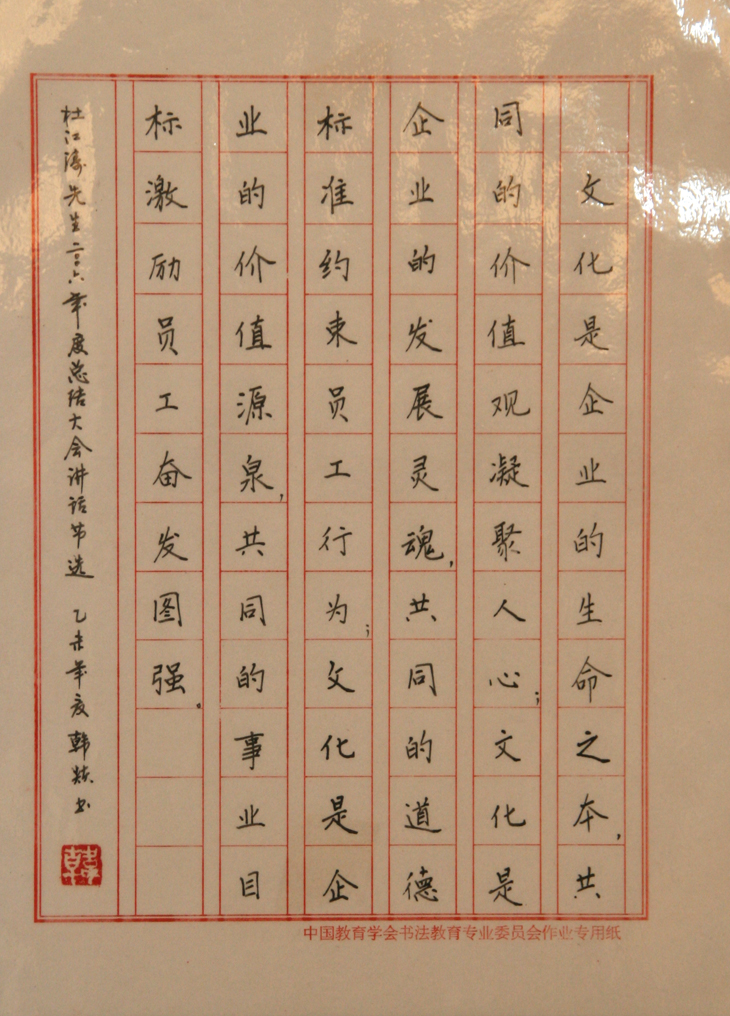 文化是企业的生命之本，共
同的价值观凝聚人心；文化是
企业的发展灵魂，共同的道德
标准约束员工行为；文化是企
业的价值源泉，共同的事业目
标激励员工奋发图强。
杜江涛先生二〇〇六年度总结大会讲话节选 乙未年夏韩 书
中国教育学会书法教育专业委员会作业专用纸